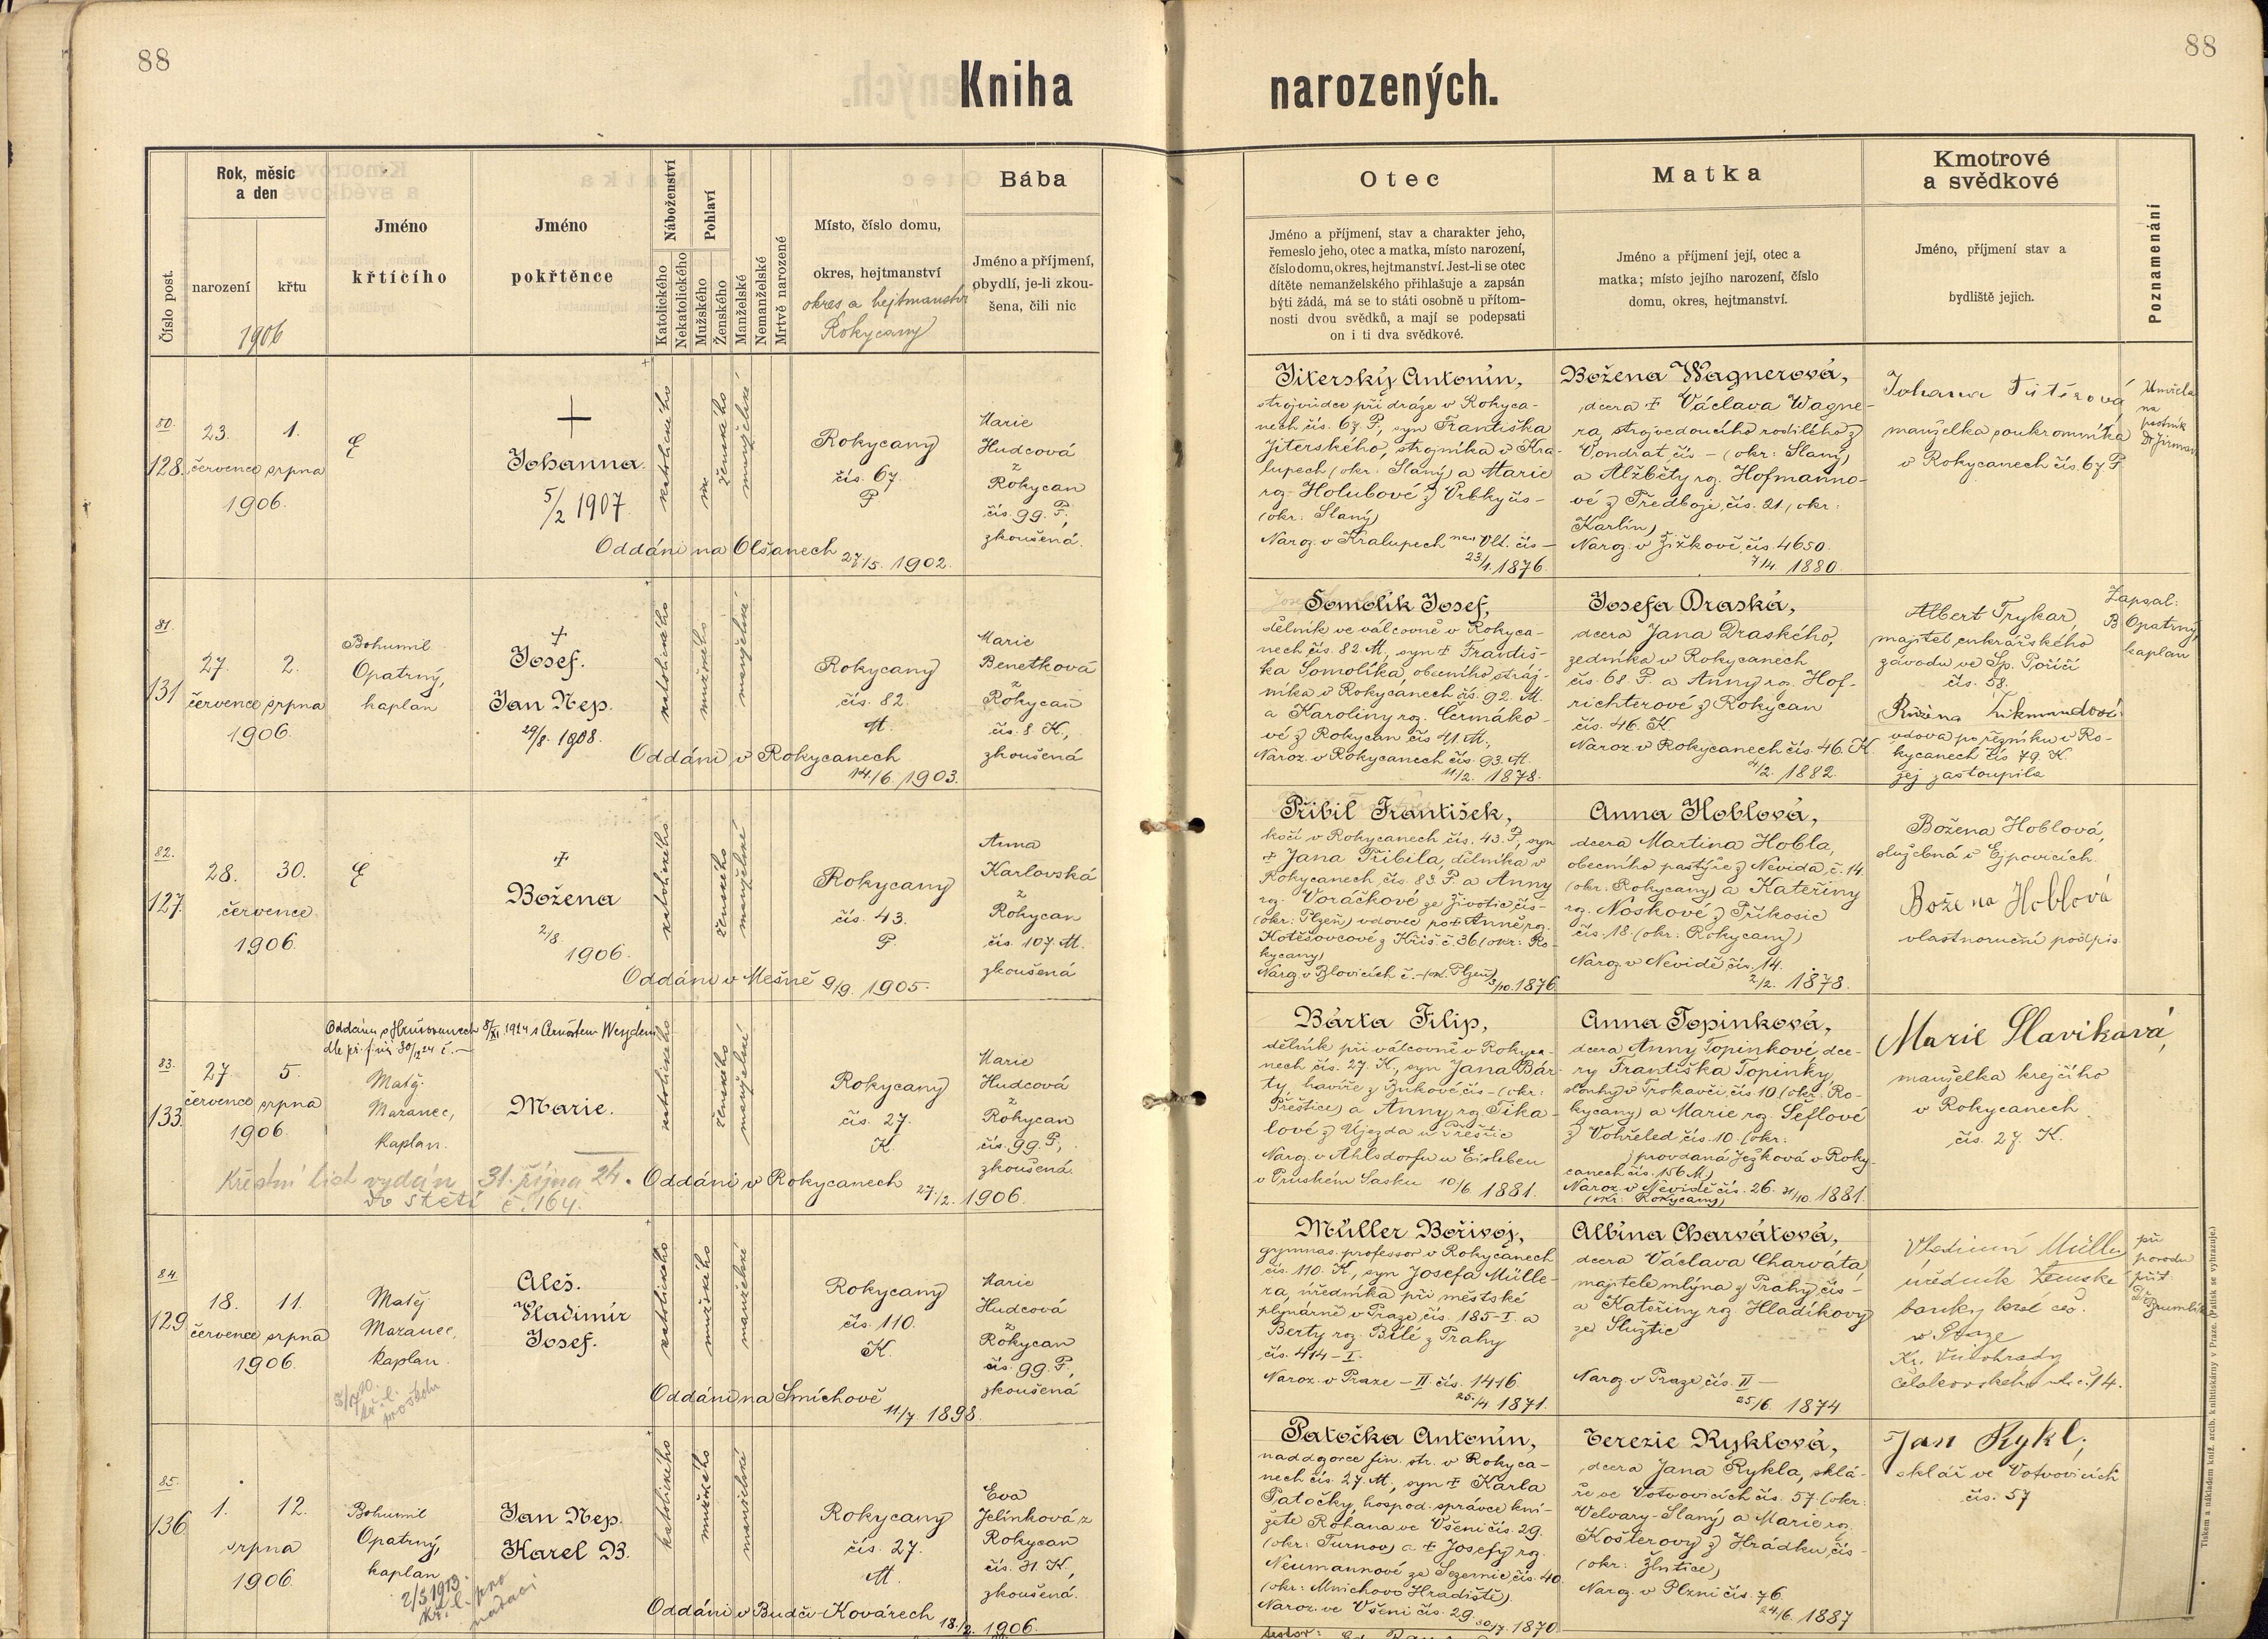 88
88
Kniha
narozených.
Číslo post.
Rok, měsíc
a den
narození
křtu
1906
Jméno
křtícího
Jméno
pokřtěnce
Náboženství
Katolického
Nekatolického
Pohlaví
Mužského
Ženského
Manželské
Nemanželské
Mrtvě narozené
Místo, číslo domu,
okres, hejtmanství
okres a hejtmanství
Rokycany
Bába
Jméno a příjmení,
obydlí, je-li zkou-
šena, čili nic
Otec
Jméno a příjmení, stav a charakter jeho,
řemeslo jeho, otec a matka, místo narození,
číslo domu, okres, hejtmanství. Jest-li se otec
dítěte nemanželského přihlašuje a zapsán
býti žádá, má se to státi osobně u přítom-
nosti dvou svědků, a mají se podepsati
on i ti dva svědkové.
Matka
Jméno a příjmení její, otec a
matka; místo jejího narození, číslo
domu, okres, hejtmanství.
Kmotrové
a svědkové
Jméno, příjmení stav a
bydliště jejich.
Poznamenání
80.
128.
23.
1.
července
srpna
1906.
Johanna.
5/2 1907
katolického
ženského
manželské
Rokycany
čís. 67.
P
Marie
Hudcová
z
Rokycan
čís. 99. P,
zkoušená.
Oddáni na Olšanech
27/5. 1902.
Jiterský Antonín,
strojvůdce při dráze v Rokyca-
nech čís. 67 P, syn Františka
Jiterského, strojníka v Kra-
lupech (okr. Slaný) a Marie
roz. Holubové z Vrbky čís -
(okr: Slaný)
Naroz. v Kralupech nad Vlt. čís -
23/1. 1876.
Božena Wagnerová,
dcera † Václava Wagne-
ra, strojvedoucího rodilého z
čís - (okr: Slaný)
a Alžběty roz. Hofmanno-
vé z Předboje, čís. 21. (okr:
Karlín)
Naroz. v Žižkově, čís. 4650.
7/4. 1880.
Johana
manželka soukromníka
v Rokycanech čís. 67 P.
Umřela
na
81.
131
27.
2.
července
srpna
1906.
Bohumil
Opatrný,
kaplan
Josef.
Jan Nep.
29/8. 1908.
katolického
mužského
manželské
Rokycany
čís. 82.
M.
Marie
Benetková
z
Rokycan
čís. 8 K.,
zkoušená
Oddáni v Rokycanech
14/6. 1903.
Somolík Josef,
dělník ve válcovně v Rokyca-
nech čís. 82 M., syn † Františ-
ka Somolíka, obecního stráž-
níka v Rokycanech čís. 92. M.
a Karoliny roz. Čermáko-
vé z Rokycan čís 41. M.,
Naroz. v Rokycanech čís. 93. M.
11/2. 1878.
Josefa Draská,
dcera Jana Draského,
zedníka v Rokycanech
čís. 68 P. a Anny roz. Hof-
richterové z Rokycan
čís. 46. K.
Naroz. v Rokycanech čís. 46. K
4/2. 1882.
Albert Trykar,
majitel cukrářského
závodu ve Sp. Poříčí
čís. 38.
Růžena
vdova po řezníku v Ro-
kycanech čís 79. K.
jej zastoupila
Zapsal:
B Opatrný,
kaplan
82.
127.
28.
30.
července
1906.
Božena
2/8. 1906.
katolického
ženského
manželské
Rokycany
čís. 43.
P.
Anna
Karlovská
z
Rokycan
čís. 107. M.
zkoušená
Oddáni v Mešně 9/9. 1905.
Přibil František,
kočí v Rokycanech čís. 43. P, syn
† Jana Přibila, dělníka v
Rokycanech, čís. 83. P. a Anny
roz. Voráčkové ze Životic, čís -
(okr: Plzeň) vdovec po † Anně roz.
Kotěšovcové z Kříš. č. 36 (okr: Ro-
kycany)
Naroz. v Blovicích č. - (okr. Plzeň) 3/10. 1876.
Anna Hoblová,
dcera Martina Hobla,
obecního pastýře z Nevida, č. 14.
(okr: Rokycany) a Kateřiny
roz. Noskové z Příkosic
čís. 18. (okr: Rokycany)
Naroz. v Nevidě čís. 14.
2/2. 1878.
Božena Hoblová,
služebná v Ejpovicích.
Božena Hoblová
vlastnoruční podpis
83.
133.
27.
5.
července
srpna
1906.
Matěj
Mazanec,
kaplan.
Marie.
katolického
ženského
manželské
Rokycany
čís. 27.
K.
Marie
Hudcová
z
Rokycan
čís. 99. P,
zkoušená.
Křestní list vydán 31. října 24.
do Štětí č. 164.
Oddáni v Rokycanech 27./2. 1906.
Bárta Filip,
dělník při válcovně v Rokyca-
nech čís. 27. K., syn Jana Bár-
ty, havíře z Žinkové, čís - (okr:
Přeštice) a Anny, roz. Tika-
lové z Újezda u Přeštic
Naroz. v Ahlsdorfu u Eisleben
v Pruském Sasku 10/6. 1881.
Anna Topinková,
dcera Anny Topinkové, dce-
ry Františka Topinky,
slouhy v Trokavci, čís. 10 (okr: Ro-
kycany) a Marie roz. Šeflové
z Vohřeled čís. 10. (okr:
) provdaná Ježková v Roky-
canech čís. 156 M.)
Naroz. v Nevidě čís. 26. 31/10. 1881.
(okr: Rokycany)
Marie Slavíková,
manželka krejčího
v Rokycanech
čís. 27. K.
84.
129
18.
11.
července
srpna
1906.
Matěj
Mazanec,
kaplan.
Aleš.
Vladimír
Josef.
katolického
mužského
manželské
Rokycany
čís. 110.
K.
Marie
Hudcová
z
Rokycan
čís. 99. P,
zkoušená
Oddáni na Smíchově
11./7. 1898.
Müller Bořivoj,
gymnas. professor v Rokycanech
čís. 110. K, syn Josefa Mülle-
ra, úředníka při městské
plynárně v Praze, čís. 185-I. a
Berty roz. Bílé z Prahy
čís. 414 - I.
Naroz. v Praze - II. čís. 1416.
25./4. 1871.
Albína Charvátová,
dcera Václava Charváta,
majitele mlýna z Prahy, čís -
a Kateřiny roz. Hladíkovy
ze Služtic
Naroz. v Praze, čís. II -
25/6. 1874
Vladimír Müller
úředník Zemské
banky král. čes.
v Praze
Kr. Vinohrady
Čelakovského ul. č. 14.
při
porodu
přít.
85.
136
1.
12.
srpna
1906.
Bohumil
Opatrný,
kaplan
2/5 1913.
kř. l. pro
nadaci
Jan Nep.
Karel B.
katolického
mužského
manželské
Rokycany
čís. 27.
M.
Eva
Jelínková z
Rokycan
čís. 31. K,
zkoušená.
Oddáni v Budči-Kovárech 18./2. 1906.
Patočka Antonín,
naddozorce fin. str. v Rokyca-
nech čís. 27. M., syn † Karla
Patočky, hospod. správce kní-
žete Rohana ve Všeni čís. 29.
(okr: Turnov) a † Josefy roz.
Neumannové ze Sezemic čís. 40.
(okr: Mnichovo Hradiště).
Naroz. ve Všeni čís. 29.
30/7. 1870
Terezie Ryklová,
dcera Jana Rykla, sklá-
ře ve Votvovicích čís. 57. (okr:
Velvary-Slaný) a Marie roz.
Košlerovy z Hrádku, čís -
(okr: Žlutice)
Naroz. v Plzni čís. 76.
24./6. 1887
Jan Rykl,
sklář ve Votvovicích
čís. 57
Tiskem a nákladem kníž. arcib. knihtiskárny v Praze. (Patisk se vyhrazuje.)